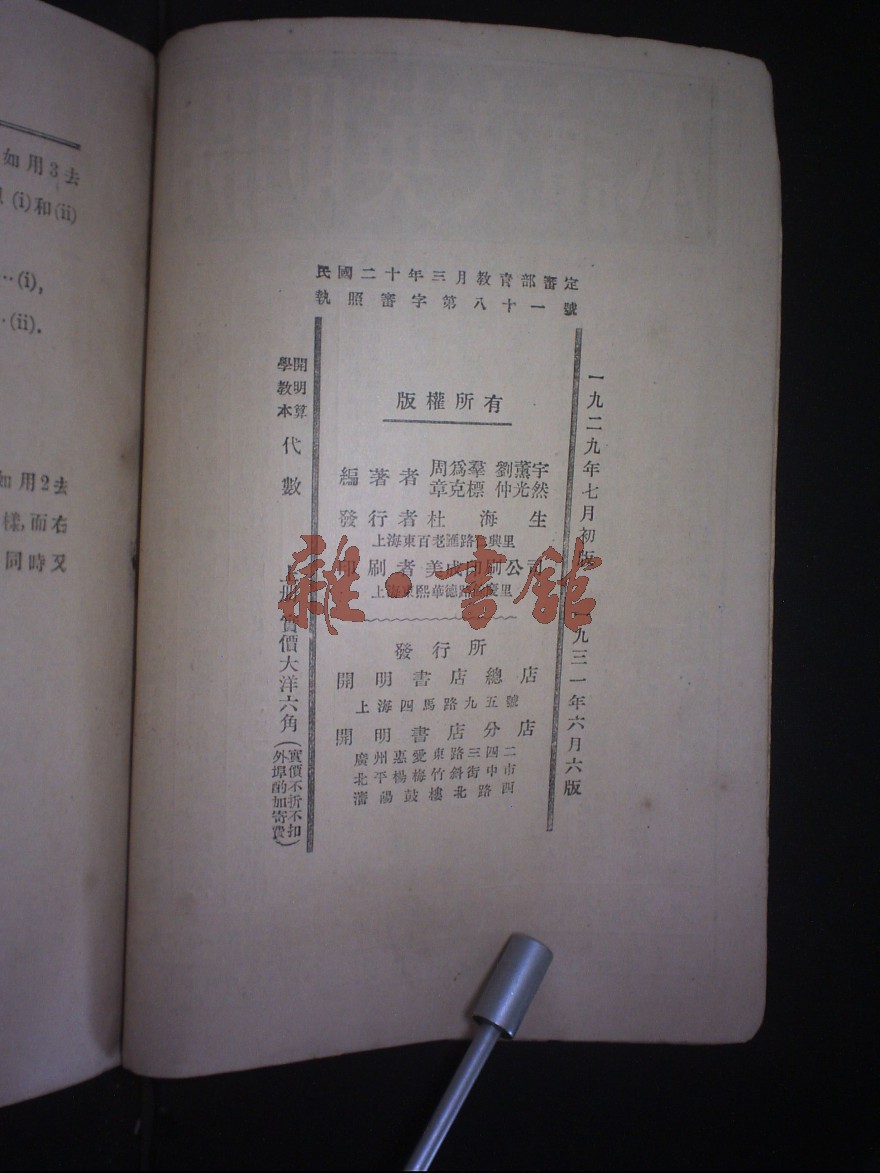 如用3去
(i)和(ii)
…(i),
…(ii).
如用2去
樣,而右
同時又
民國二十年三月教育部審定
執照審字第八十一號
一九二九年七月初版
一九三一年六月六版
版權所有
編著者 周爲羣 劉薰宇
章克標 仲光然
發行者 杜海生
上海東百老匯路仁興里
印刷者 美成印刷公司
上海東熙華德路餘慶里
發行所
開明書店總店
上海四馬路九五號
開明書店分店
廣州惠愛東路三四二
北平楊梅竹斜街中市
瀋陽鼓樓北路西
開明算學教本 代數
上冊 實價大洋六角
(實價不折不扣
外埠酌加寄費)
雜·書館